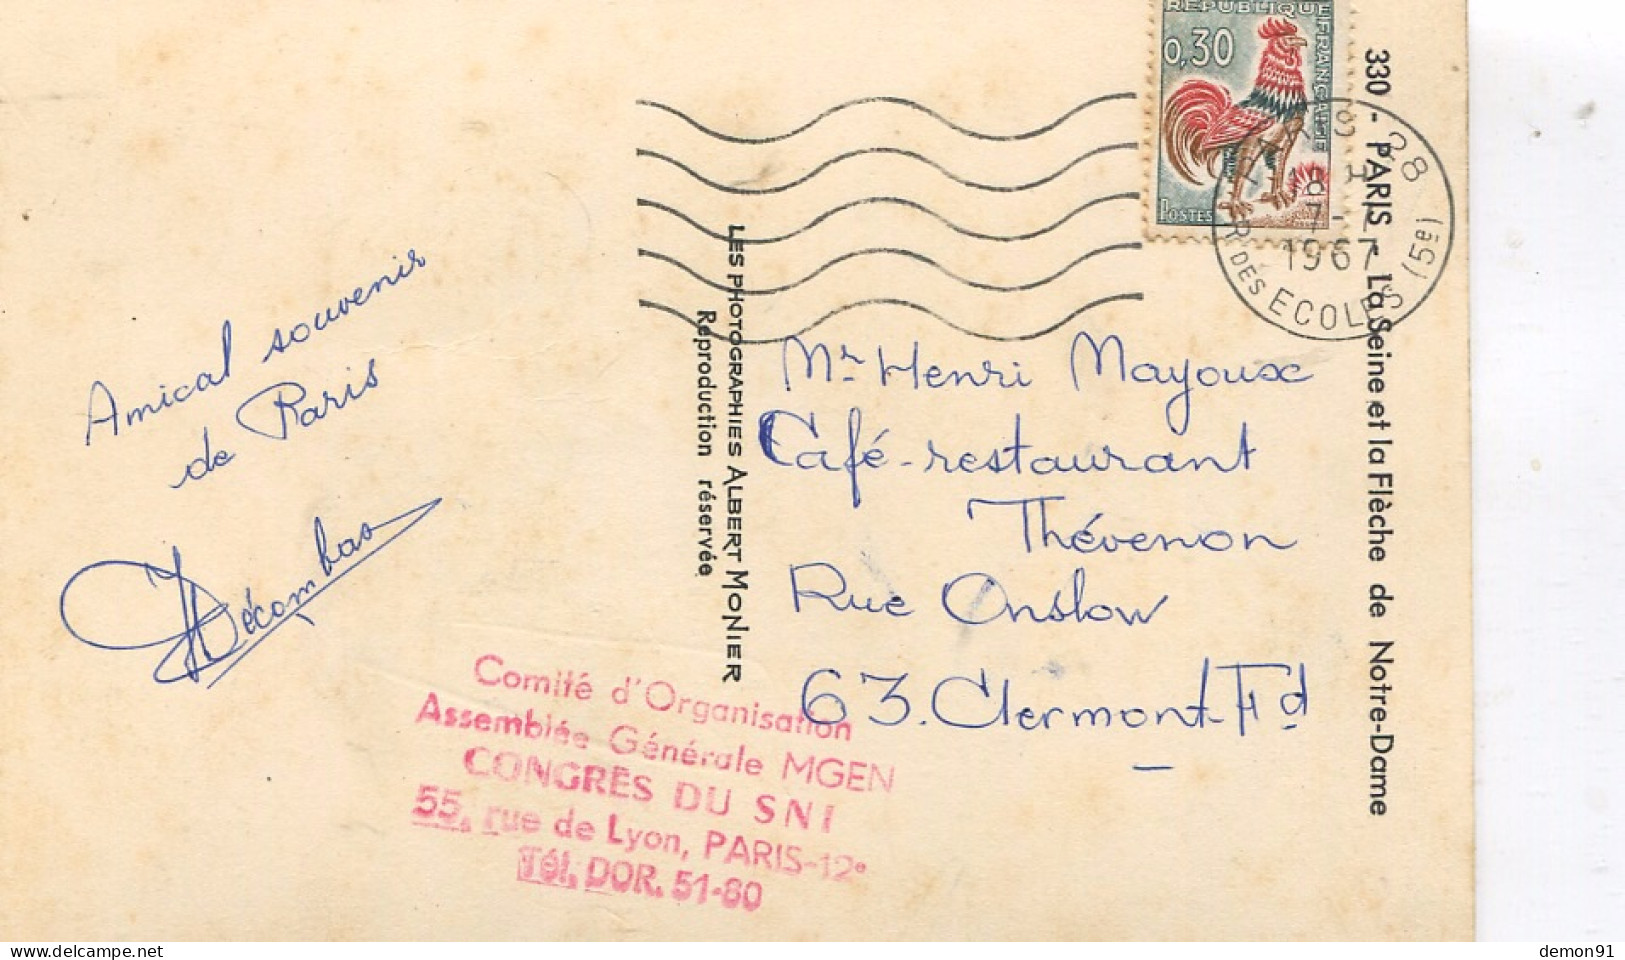 Amical souvenir
de Paris
Décombas
LES PHOTOGRAPHIES ALBERT MONIER
Reproduction réservée
RÉPUBLIQUE FRANÇAISE
0,30
POSTES
PARIS 28
1967
R. DES ECOLES (5è)
330 - PARIS - La Seine et la Flèche de Notre-Dame
Mr Henri Mayoux
Café-restaurant
Thévenon
Rue Onslow
63. Clermont-Fd
Comité d'Organisation
Assemblée Générale MGEN
CONGRÈS DU SNI
55, rue de Lyon, PARIS-12e
Tél. DOR. 51-80
demon91